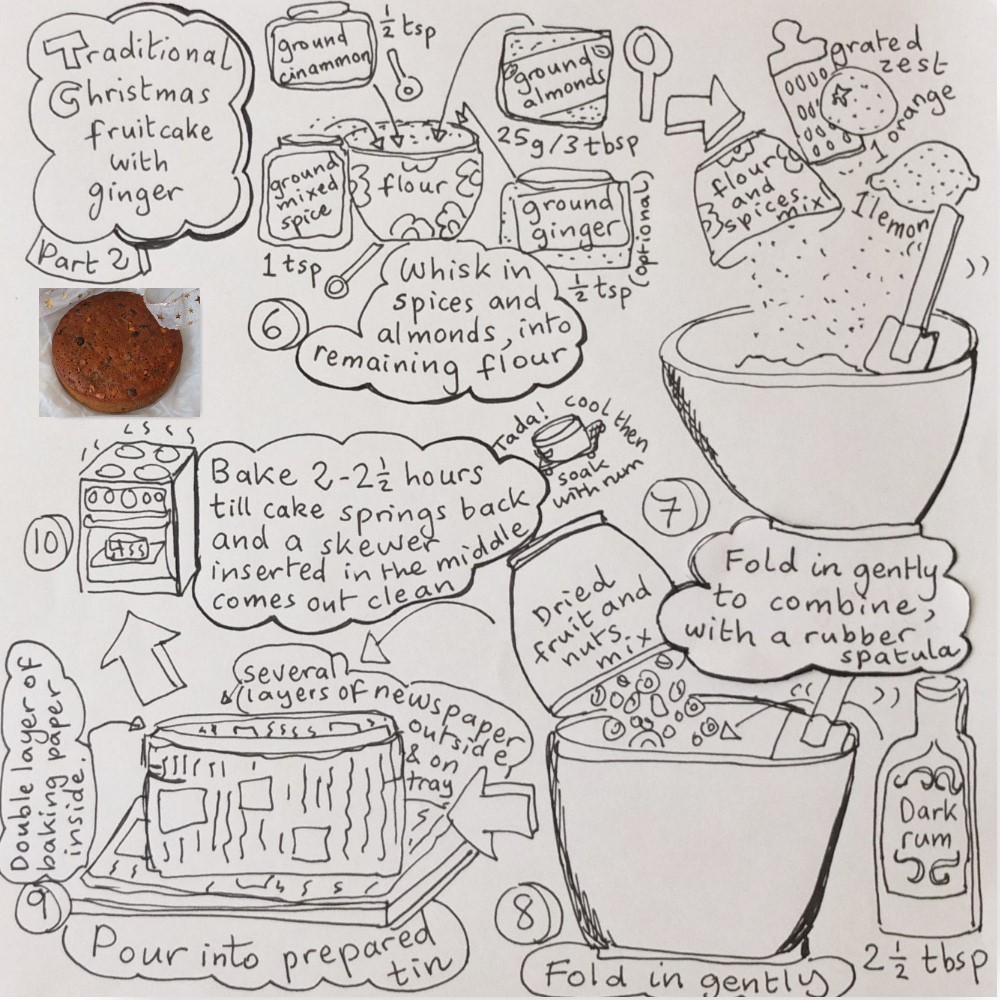 Traditional
Christmas
fruitcake
with
ginger
Part 2
ground
cinammon
1/2 tsp
ground
almonds
25g/3 tbsp
ground
mixed
spice
1 tsp
flour
ground
ginger
(optional)
1/2 tsp
6
Whisk in
spices and
almonds, into
remaining flour
grated
zest
1 orange
1 lemon
flour
and
spices
mix
7
Fold in gently
to combine,
with a rubber
spatula
Dried
fruit and
nuts
mix
Dark
rum
2 1/2 tbsp
8
Fold in gently
several
layers of newspaper
outside
& on
tray
Double layer of
baking paper
inside.
9
Pour into prepared
tin
10
Bake 2-2 1/2 hours
till cake springs back
and a skewer
inserted in the middle
comes out clean
Tada!
cool then
soak
with rum